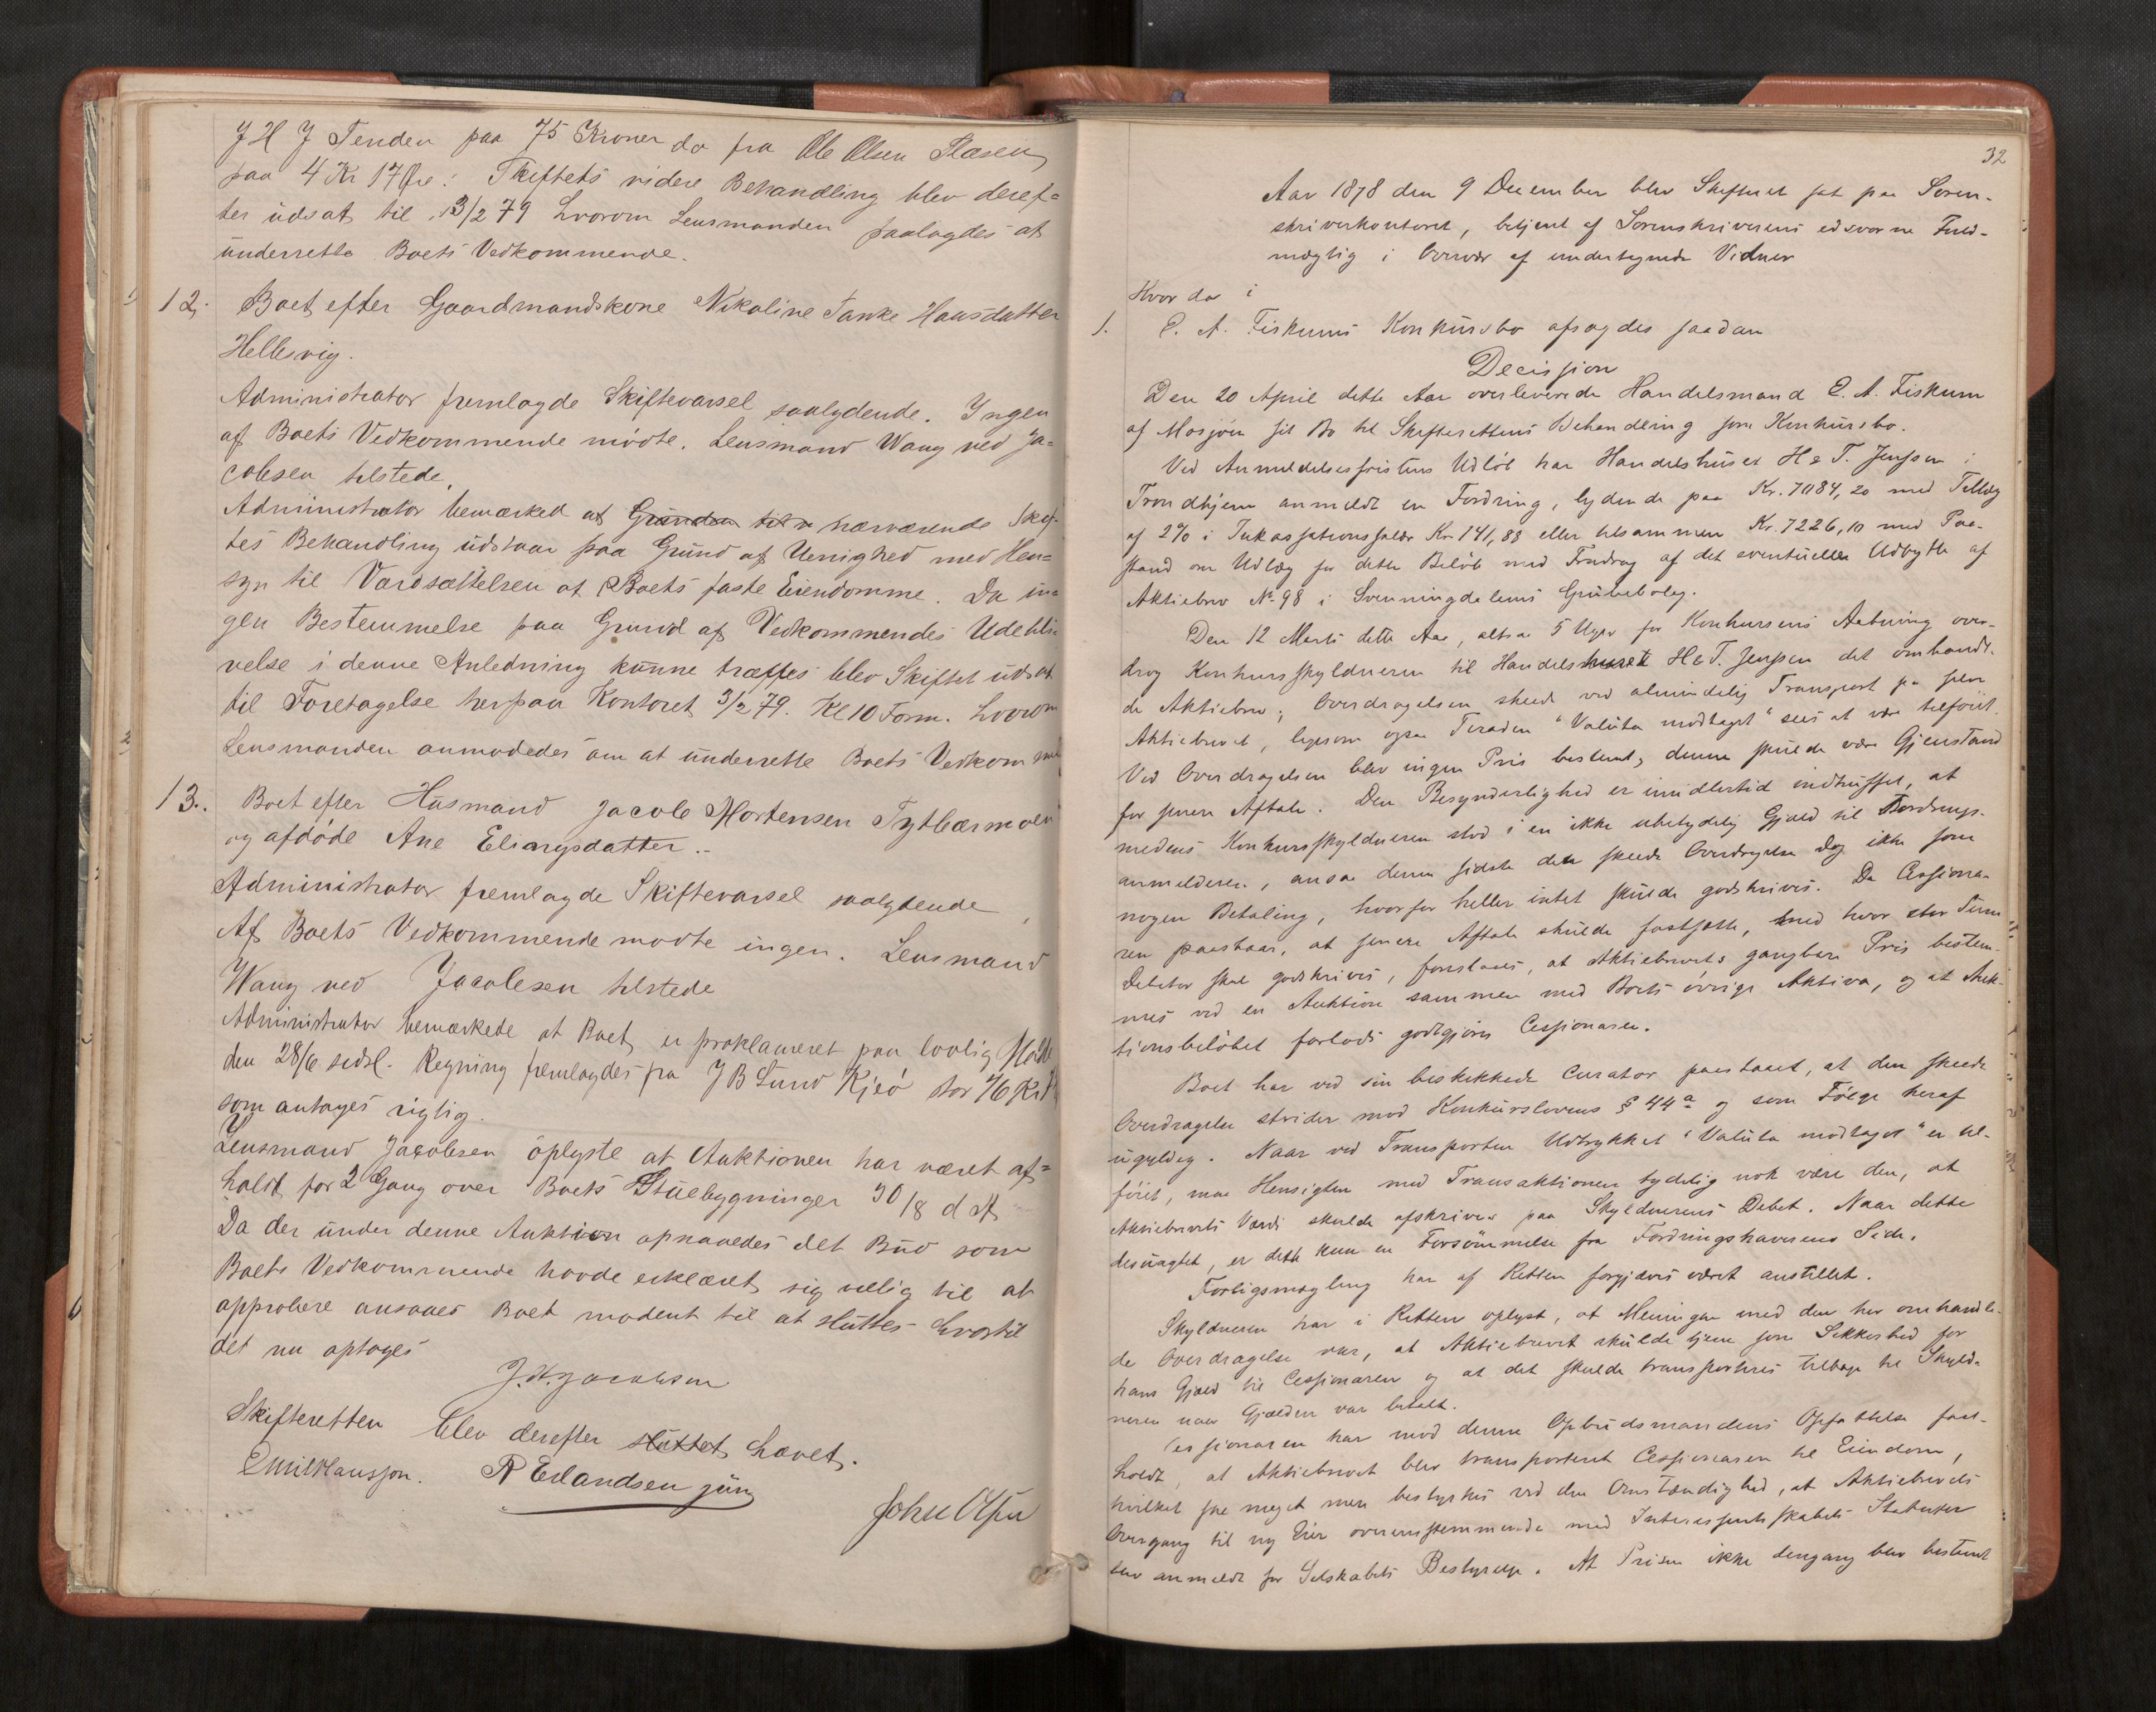 J H J Tenden paa 75 Kroner do fra Ole Olsen
paa 4 Kr 17 Øre: Skiftets videre Behandling blev deref=
ter udsat til 13/2 79 hvorom Lensmanden paalagdes at
underrette Boets Vedkommende.
12. Boet efter Gaardmandskone Nikoline Tanke Hansdatter
Hellesvig.
Administrator fremlagde Skiftevarsel saalydende. Ingen
af Boets Vedkommende mødte. Lensmand Wang ved Ja=
cobsen tilstede.
Administrator bemærked at Grunden til nærværende Skif-
tes Behandling udstaar paa Grund af Uenighed med Hen=
syn til Værdsættelsen af Boets faste Eiendomme. Da in=
gen Bestemmelse paa Grund af Vedkommendes Udebli=
velse i denne Anledning kunne træffes blev Skiftet udsat
til Foretagelse herpaa Kontoret 3/2 79. Kl 10 Form. hvorom
Lensmanden anmodedes om at underrette Boets Vedkomm
13. Boet efter Husmand Jacob Mortensen Tytbærmoen
og afdøde Ane Eliasdatter.-
Administrator fremlagde Skiftevarsel saalydende
Af Boets Vedkommende mødte ingen. Lensmand
Wang ved Jacobsen tilstede
Administrator bemærkede at Boet er proklameret paa lovlig Maade
den 28/6 sidstl. Regning fremlagdes fra J B Lund stor
som antages rigtig.
Lensmand Jacobsen oplyste at Auktionen har været af=
holdt for 2 Gang over Boets Stuebygninger 30/8 d A
Da der under denne Auktion opnaaedes det Bud som
Boets Vedkommende havde erklæret sig villig til at
approbere ansaaes Boet modent til at sluttes hvortil
det nu optoges
J.H. Jacobsen
Skifteretten blev derefter sluttet hævet.
Emil Hansson. P Erlandsen jün
John Olsen
32
Aar 1878 den 9 December blev Skifteret sat paa Soren-
skriverkontoret, betjent af Sorenskriverens edsvorne Fuld-
mægtig i Overvær af undertegnede Vidner
Hvor da i
1. E. A. Fiskums Konkursbo afsagdes saadan
Decission
Den 20 April dette Aar overleverede Handelsmand E. A. Fiskum
af Mosjøen sit Bo til Skifterettens Behandling som Konkursbo.
Ved Anmeldelsesfristens Udløb har Handelshuset H & T. Jenssen i
Trondhjem anmeldt en Fordring, lydende paa Kr. 7084,20 med Tillæg
af 2% i Inkassationssalær Kr 141,88 eller tilsammen Kr. 7226,10 med Paa-
stand om Udlæg for dette Beløb med Fradrag af det eventuelle Udbytte af
Aktiebrev No 98 i Svenningdalens Grubebolag.
Den 12 Marts dette Aar, altsaa 5 Uger før Konkursens Aabning over-
drog Konkursskyldneren til Handelshuset H & T. Jenssen det omhandle-
de Aktiebrev; Overdragelsen skede ved almindelig Transport paa selve
Aktiebrevet, ligesom ogsaa Teraden "Valuta modtaget" sees at være tilføiet.
Ved Overdragelsen blev ingen Pris bestemt, denne skulde være Gjenstand
for senere Aftale. Den Besynderlighed er imidlertid indtruffet, at
medens Konkursskyldneren stod i en ikke ubetydelig Gjæld til Fordrings-
anmelderen, ansaa denne sidste den skeede Overdragelse dog ikke som
nogen Betaling, hvorfor heller intet skulde godskrives. Da Cessiona-
ren paastaar, at senere Aftale skulde fastsætte, med hvor stor Sum
Debitor skal godskrives, foreslaaes, at Aktiebrevets gangbare Pris bestem-
mes ved en Auktion sammen med Boets øvrige Aktiva, og at Auk-
tionsbeløbet forlods godtgjøres Cessionaren.
Boet har ved sin beskikkede Curator paastaaet, at den skeede
Overdragelse strider mod Konkurslovens § 44a og som Følge heraf
ugyldig. Naar ved Transporten Udtrykket "Valuta modtaget" er til-
føiet, maa Hensigten med Transaktionen tydelig nok være den, at
Aktiebrevets Værdi skulde afskrives paa Skyldnerens Debet. Naar dette
desuagtet, er dette kun en Forsømmelse fra Fordringshaverens Side.
Forligsmægling har af Retten forgjæves været anstillet.
Skyldneren har i Retten oplyst, at Meningen med den her omhandle-
de Overdragelse var, at Aktiebrevet skulde tjene som Sikkerhed for
hans Gjæld til Cessionaren og at det skulde transporteres tilbage til Skyld-
neren naar Gjælden var betalt.
Cessionaren har mod denne Opbudsmandens Opfattelse fast-
holdt, at Aktiebrevet blev transporteret Cessionaren til Eiendom,
hvilket saa meget mere bestyrkes ved den Omstændighed, at Aktiebrevets
Overgang til ny Eier overensstemmende med Interessentskabets Statuter
blev anmeldt for Selskabets Bestyrelse. At Prisen ikke dengang blev bestemt